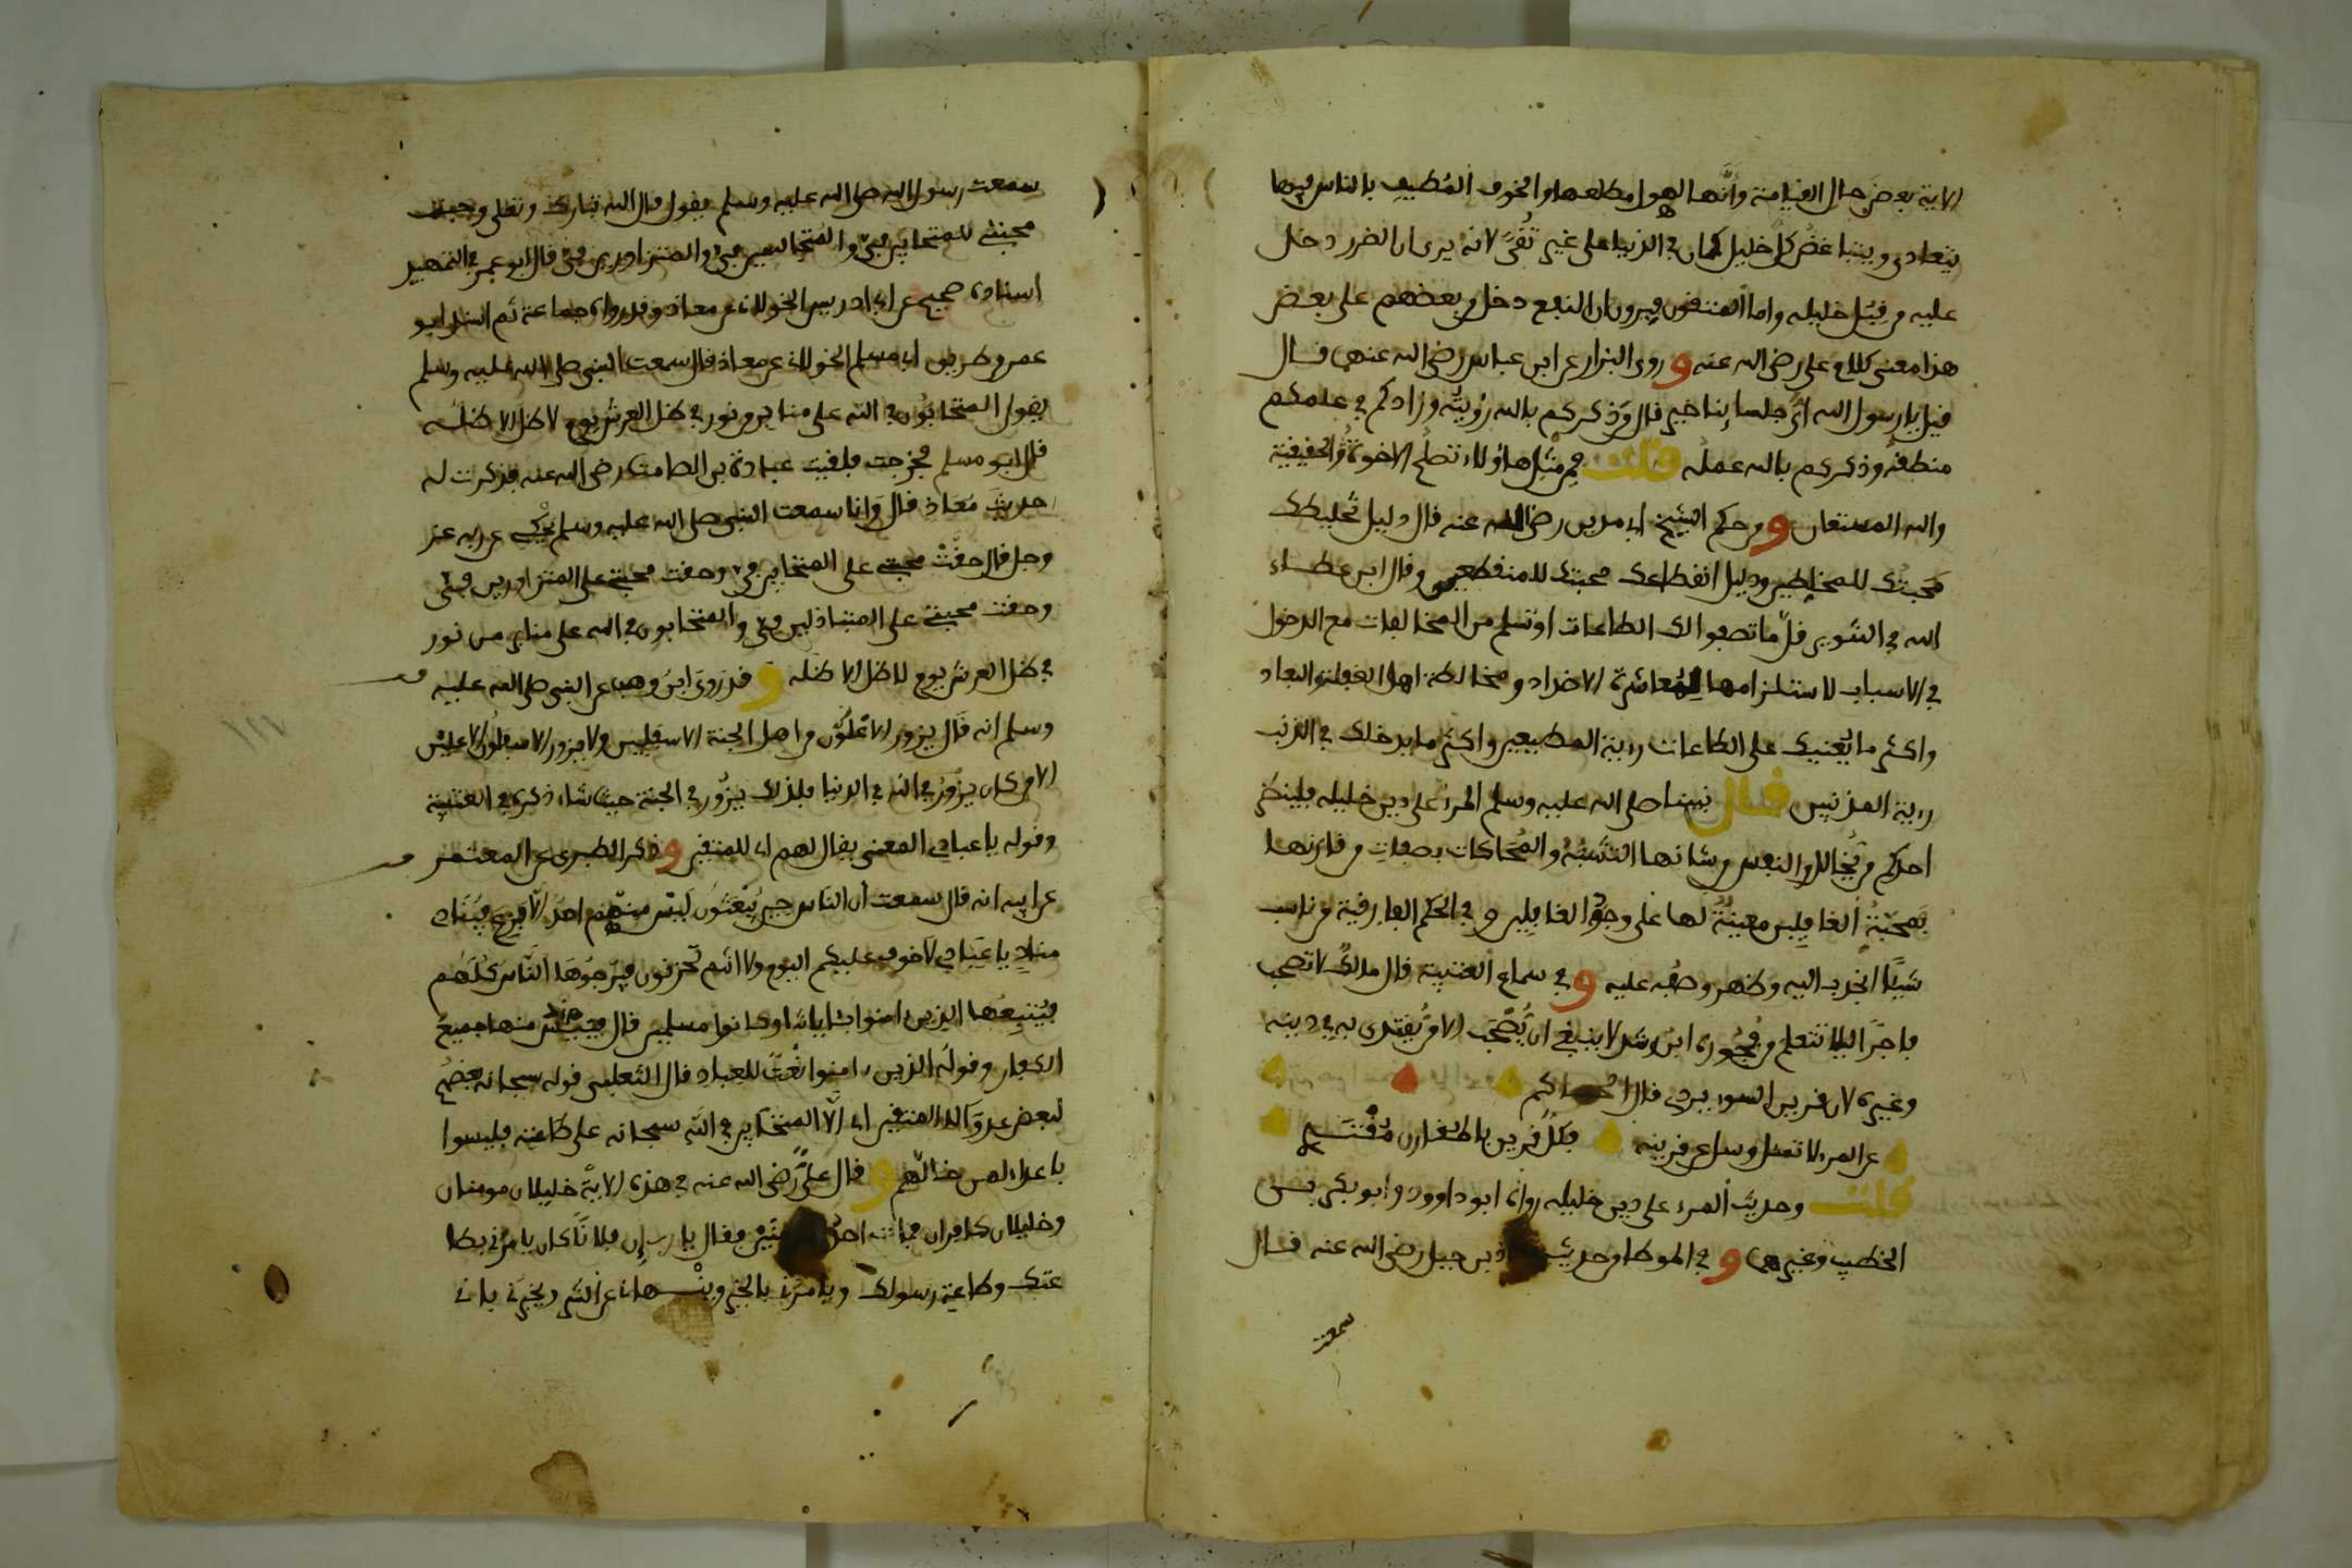 الاية بعض حال القيامة وانها لهول مطلعها والخوف المطيف بالناس فيها
يتعادى ويتباغض كل خليل كان في الدنيا على غير تقى لانه يرى ان الضرر دخل
عليه من قبل خليله واما المتقون فيرون ان النفع دخل من بعضهم على بعض
هذا معنى كلام علي رضي الله عنه و روى البزار عن ابن عباس رضي الله عنهما قال
قيل يا رسول الله اي جلسائنا خير قال من ذكركم بالله رؤيته وزادكم في علمكم
منطقه وذكركم بالله عمله قلت فمن مثل هاؤلاء تصلح الاخوة الحقيقية
والله المستعان و من حكم الشيخ ابي مدين رضي الله عنه قال دليل تخليطك
محبتك للمخلطين ودليل انقطاعك محبتك للمنقطعين وقال ابن عطاء
الله في التنوير قل ما تصفوا لك الطاعات او تسلم من المخالفات مع الدخول
في الاسباب لاستلزامها لمعاشرة الاضداد ومخالطة اهل الغفلة والبعاد
واكثر ما يعينك على الطاعات رءية المطيعين واكثر ما يدخلك في الذنب
رءية المذنبين قال نبينا صلى الله عليه وسلم المرء على دين خليله فلينظر
احدكم من يخالل والنفس من شانها التشبه والمحاكات بصفات من قارنها
فصحبة الغافلين معينة لها على وجود الغافلين و في الحكم الفارقية من ناسب
شيئا انجذب اليه وظهر وصفه عليه و في سماع العتبية قال مالك لا تصحب
فاجرا ليلا تتعلم من فجوره ابن رشد لا ينبغي ان يصحب الا من يقتدى به في دينه
وغيره لان قرين السوء يردي قال
عن المرء لا تسل وسل عن قرينه فكل قرين بالمقارن مقتد
قلت وحديث المرء على دين خليله رواه ابو داوود وابو بكر بن
الخطيب وغيرهما و في الموطا من حديث معاذ بن جبل رضي الله عنه قال
سمعت
سمعت رسول الله صلى الله عليه وسلم يقول قال الله تبارك وتعالى وجبت
محبتي للمتحابين في والمتجالسين في والمتزاورين في قال ابو عمر في التمهيد
اسناده صحيح عن ابي ادريس الخولاني عن معاذ وقد رواه جماعة ثم اسند ابو
عمر من طريق ابي مسلم الخولاني عن معاذ قال سمعت النبي صلى الله عليه وسلم
يقول المتحابون في الله على منابر من نور في ظل العرش يوم لا ظل الا ظله
قال ابو مسلم فخرجت فلقيت عبادة بن الصامت رضي الله عنه فذكرت له
حديث معاذ قال وانا سمعت النبي صلى الله عليه وسلم يحكي عن ربه عز
وجل قال حقت محبتي على المتحابين في وحقت محبتي على المتزاورين في
وحقت محبتي على المتباذلين في والمتحابون في الله على منابر من نور
في ظل العرش يوم لا ظل الا ظله و قد روى ابن وهب عن النبي صلى الله عليه
وسلم انه قال يزور الاعلون من اهل الجنة الاسفلين ولا يزور الاسفلون الاعلين
الا من كان يزور في الله في الدنيا فذلك يزور في الجنة حيث شاء ذكره في العتبية
وقوله يا عبادي المعنى يقال لهم اي للمتقين و ذكر الطبري عن المعتمر
عن ابيه انه قال سمعت ان الناس حين يبعثون ليس منهم احد الا فزع فينادي
مناد يا عبادي لا خوف عليكم اليوم ولا انتم تحزنون فيرجوها الناس كلهم
فيتبعها الذين ءامنوا بئاياتنا وكانوا مسلمين قال فييئس منها جميع
الكفار وقوله الذين ءامنوا نعت للعباد قال الثعلبي قوله سبحانه بعضهم
لبعض عدو الا المتقين اي الا المتحابين في الله سبحانه على طاعته فليسوا
باعداء لمن خالهم و قال علي رضي الله عنه في هذه الاية خليلان مومنان
وخليلان كافران فمات احد فقال يا رب ان فلانا كان يامرني بطا
عتك وطاعة رسولك ويامرني بالخير وينهاني عن الشر ويخبرني باني